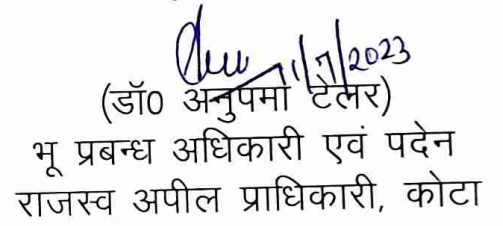 1/7/2023
(डॉ0 अनुपमा टेलर)
भू प्रबन्ध अधिकारी एवं पदेन
राजस्व अपील प्राधिकारी, कोटा